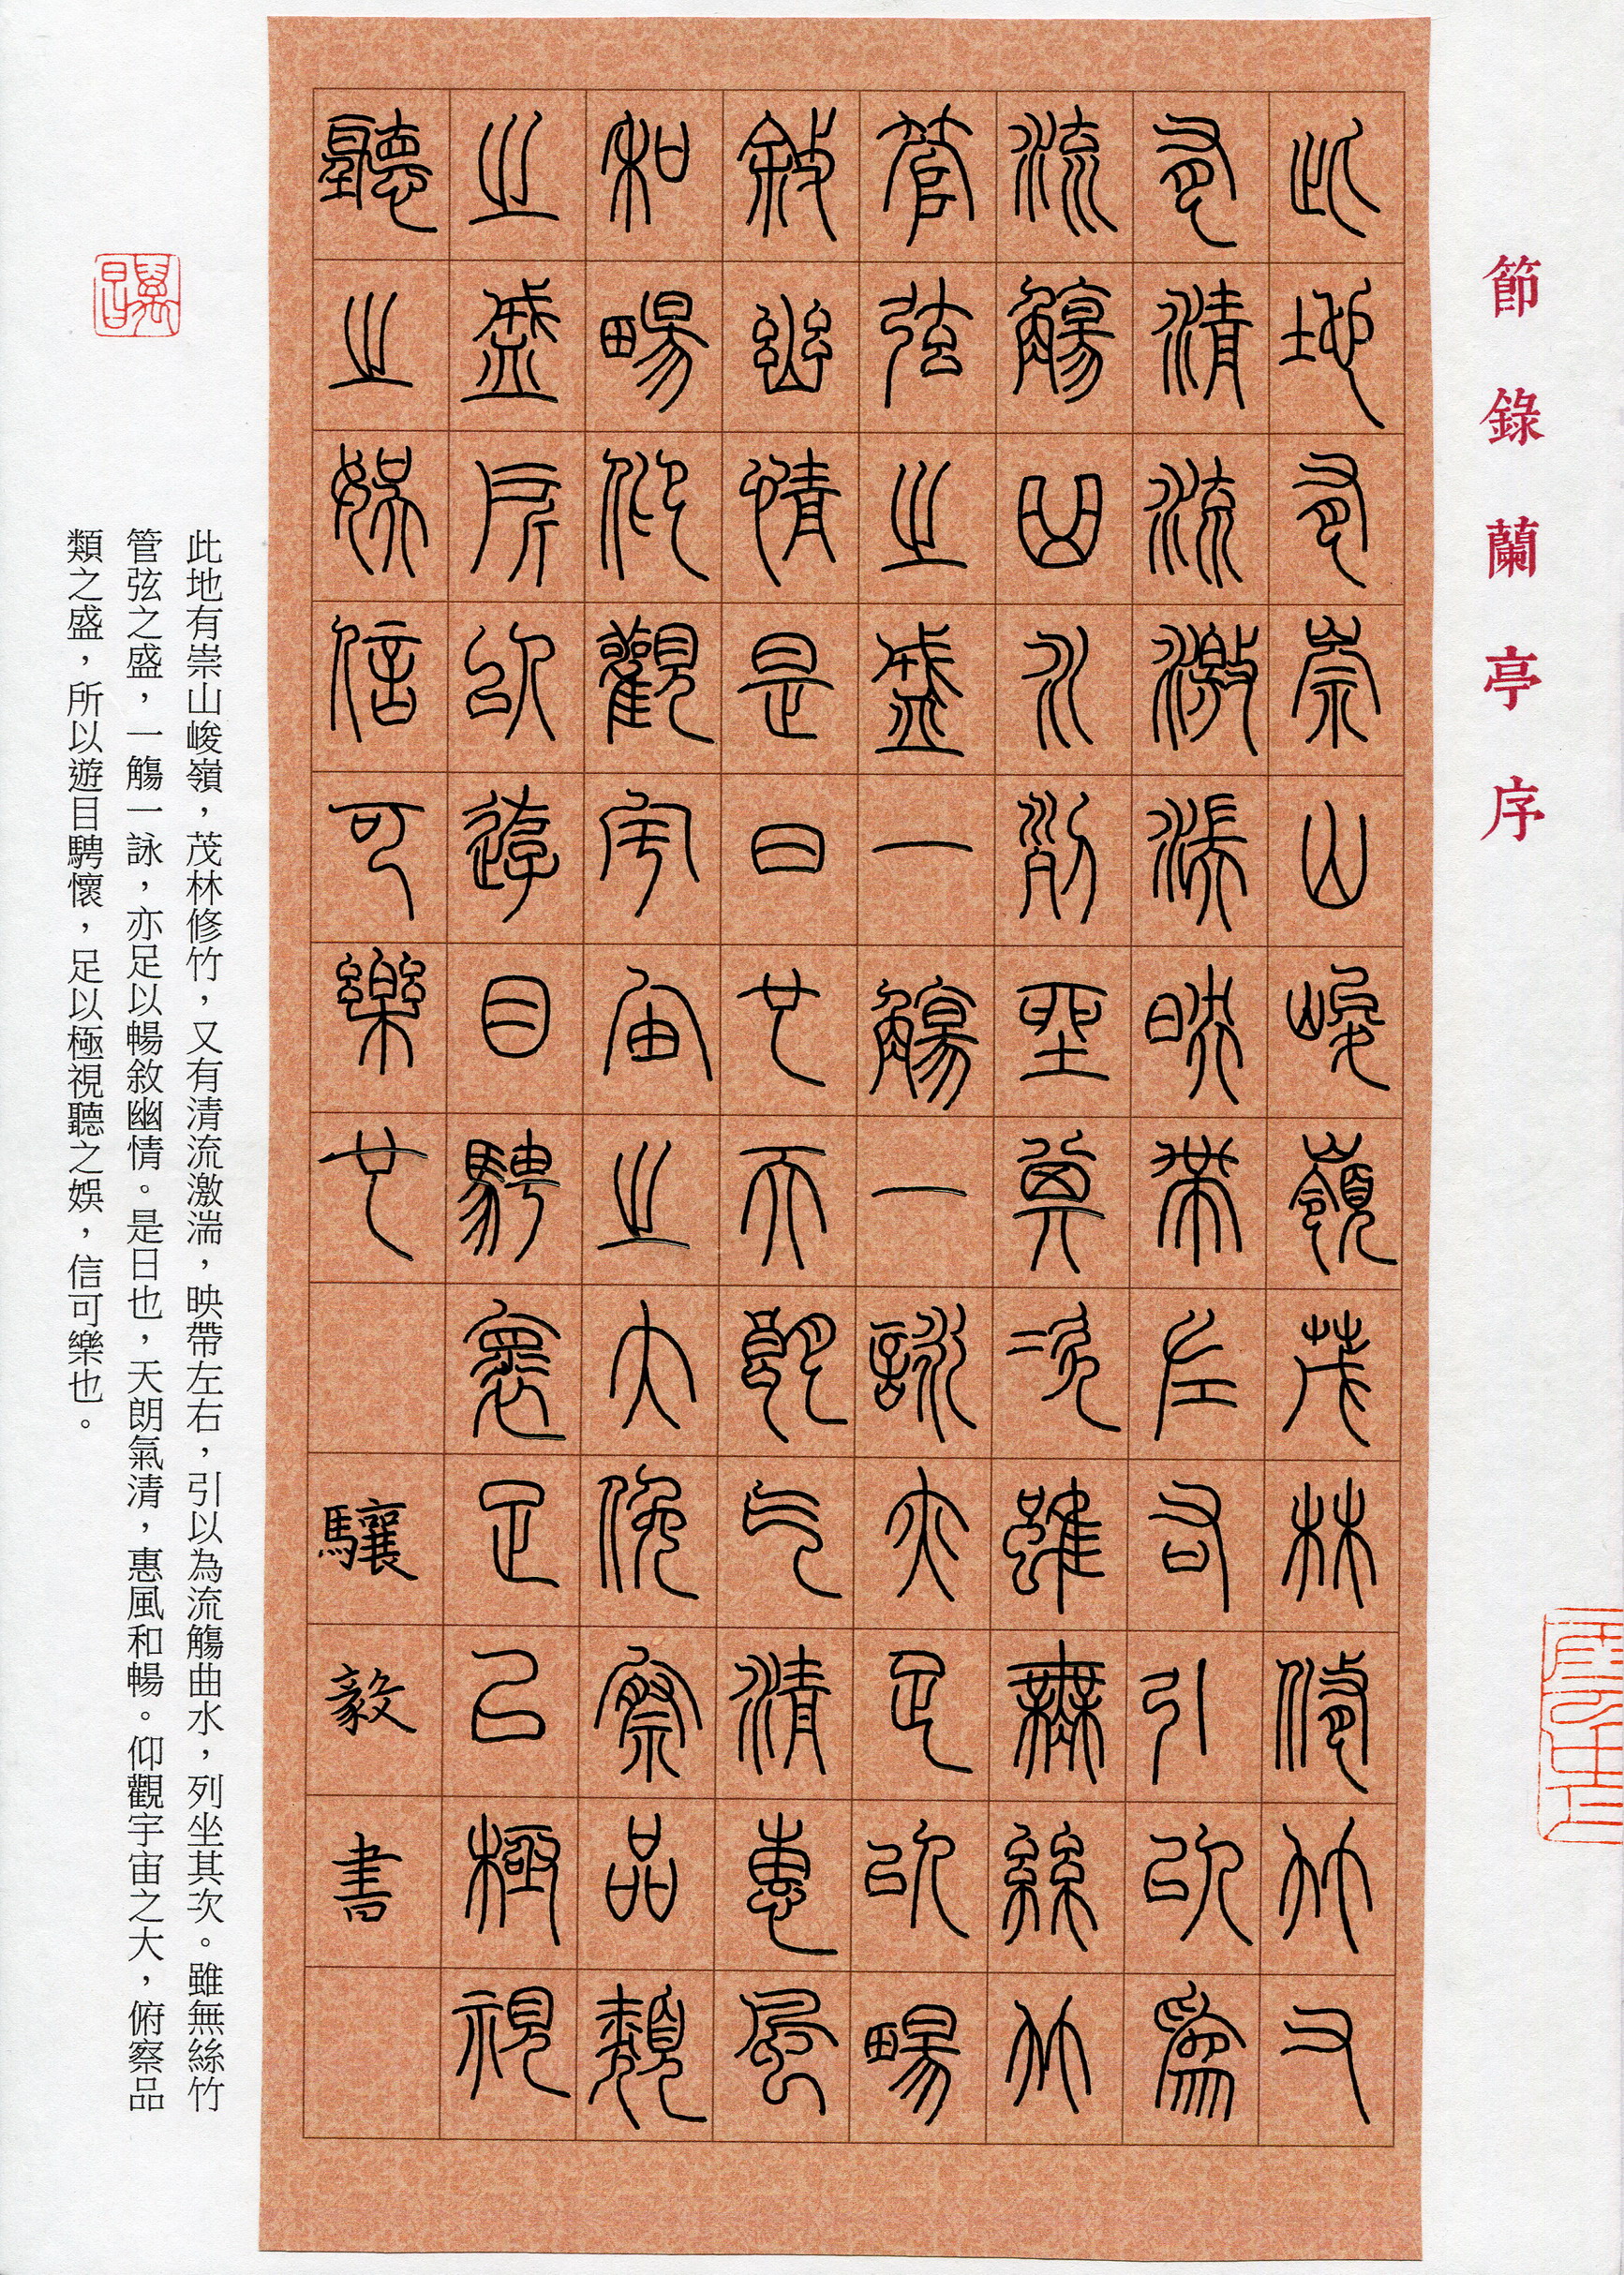 節錄蘭亭序
此地有崇山峻嶺茂林修竹又
有清流激湍映帶左右引以為
流觴曲水列坐其次雖無絲竹
管弦之盛一觴一詠亦足以暢
敘幽情是日也天朗氣清惠風
和暢仰觀宇宙之大俯察品類
之盛所以遊目騁懷足以極視
聽之娛信可樂也 驤毅書
此地有崇山峻嶺，茂林修竹，又有清流激湍，映帶左右，引以為流觴曲水，列坐其次。雖無絲竹
管弦之盛，一觴一詠，亦足以暢敘幽情。是日也，天朗氣清，惠風和暢。仰觀宇宙之大，俯察品
類之盛，所以遊目騁懷，足以極視聽之娛，信可樂也。